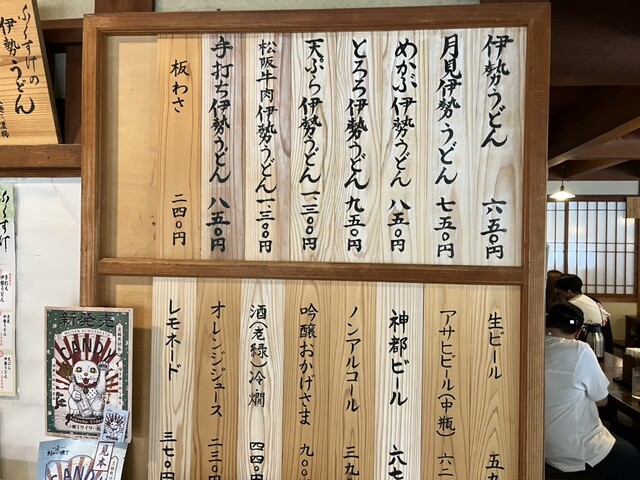 伊勢うどん 六五〇円
月見伊勢うどん 七五〇円
めかぶ伊勢うどん 八五〇円
とろろ伊勢うどん 九五〇円
天ぷら伊勢うどん 一、三〇〇円
松阪牛肉伊勢うどん 一、三〇〇円
手打ち伊勢うどん 八五〇円
板わさ 二四〇円
生ビール 五
アサヒビール(中瓶) 六二
神都ビール 六七
ノンアルコール 三九
吟醸おかげさま 九〇
酒(老緑)冷燗 四四〇円
オレンジジュース 二三〇円
レモネード 三七〇円
ふくすけの
伊勢うどん
ふくすけ
新発売
見本